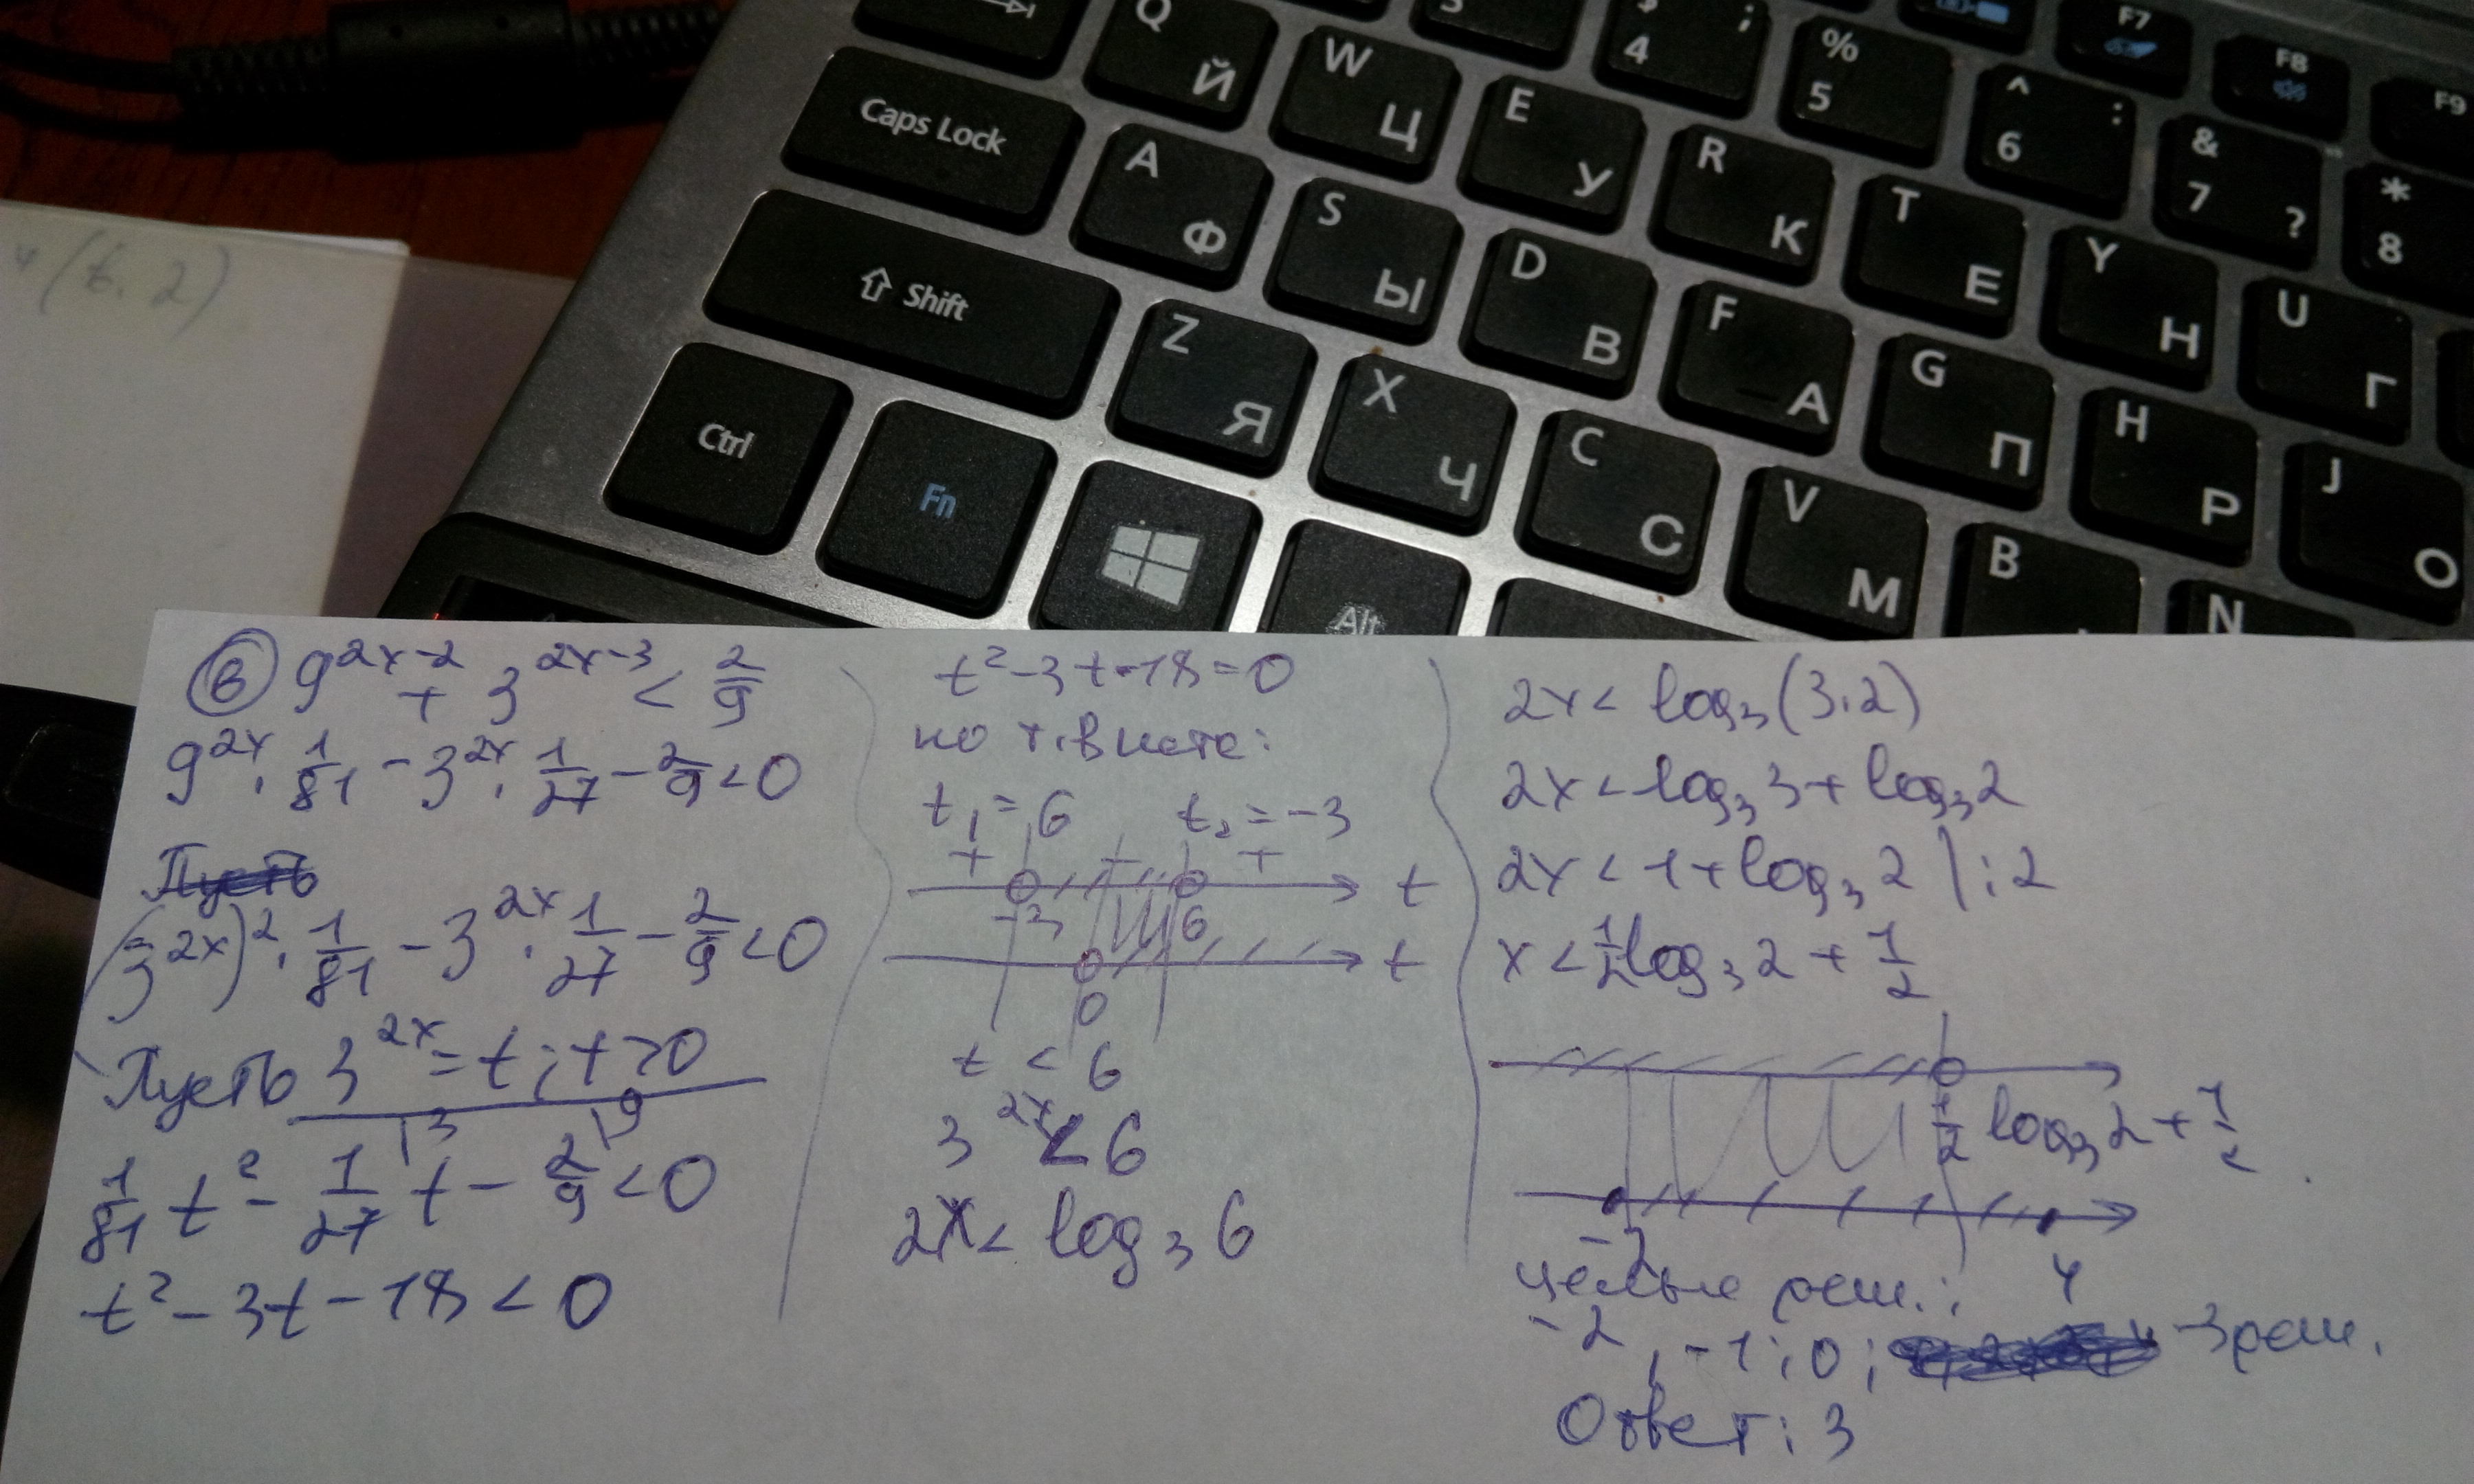 Q Й
4 ;
% 5
F7
F8
F9
Caps Lock
W Ц
E У
^ 6 :
& 7 ?
* 8
A Ф
R К
T Е
Y Н
U Г
S Ы
D В
Shift
F А
G П
H Р
J О
Z Я
X Ч
C С
V М
B
N
Ctrl
Fn
Alt
(6.2)
⑥ 9^{2x-2} + 3^{2x-3} < 2/9
9^{2x} · 1/81 - 3^{2x} · 1/27 - 2/9 < 0
(3^{2x})^2 · 1/81 - 3^{2x} · 1/27 - 2/9 < 0
Пусть 3^{2x} = t; t > 0
1/81 t^2 - 1/27 t - 2/9 < 0
|3 |9
t^2 - 3t - 18 < 0
t^2 - 3t - 18 = 0
по т. Виета:
t_1 = 6 t_2 = -3
+ - +
-3 6 t
0 t
t < 6
3^{2x} < 6
2x < log_3 6
2x < log_3 (3·2)
2x < log_3 3 + log_3 2
2x < 1 + log_3 2 | :2
x < 1/2 log_3 2 + 1/2
1/2 log_3 2 + 1/2
-2 4
целые реш.:
-2, -1; 0; - 3 реш.
Ответ: 3